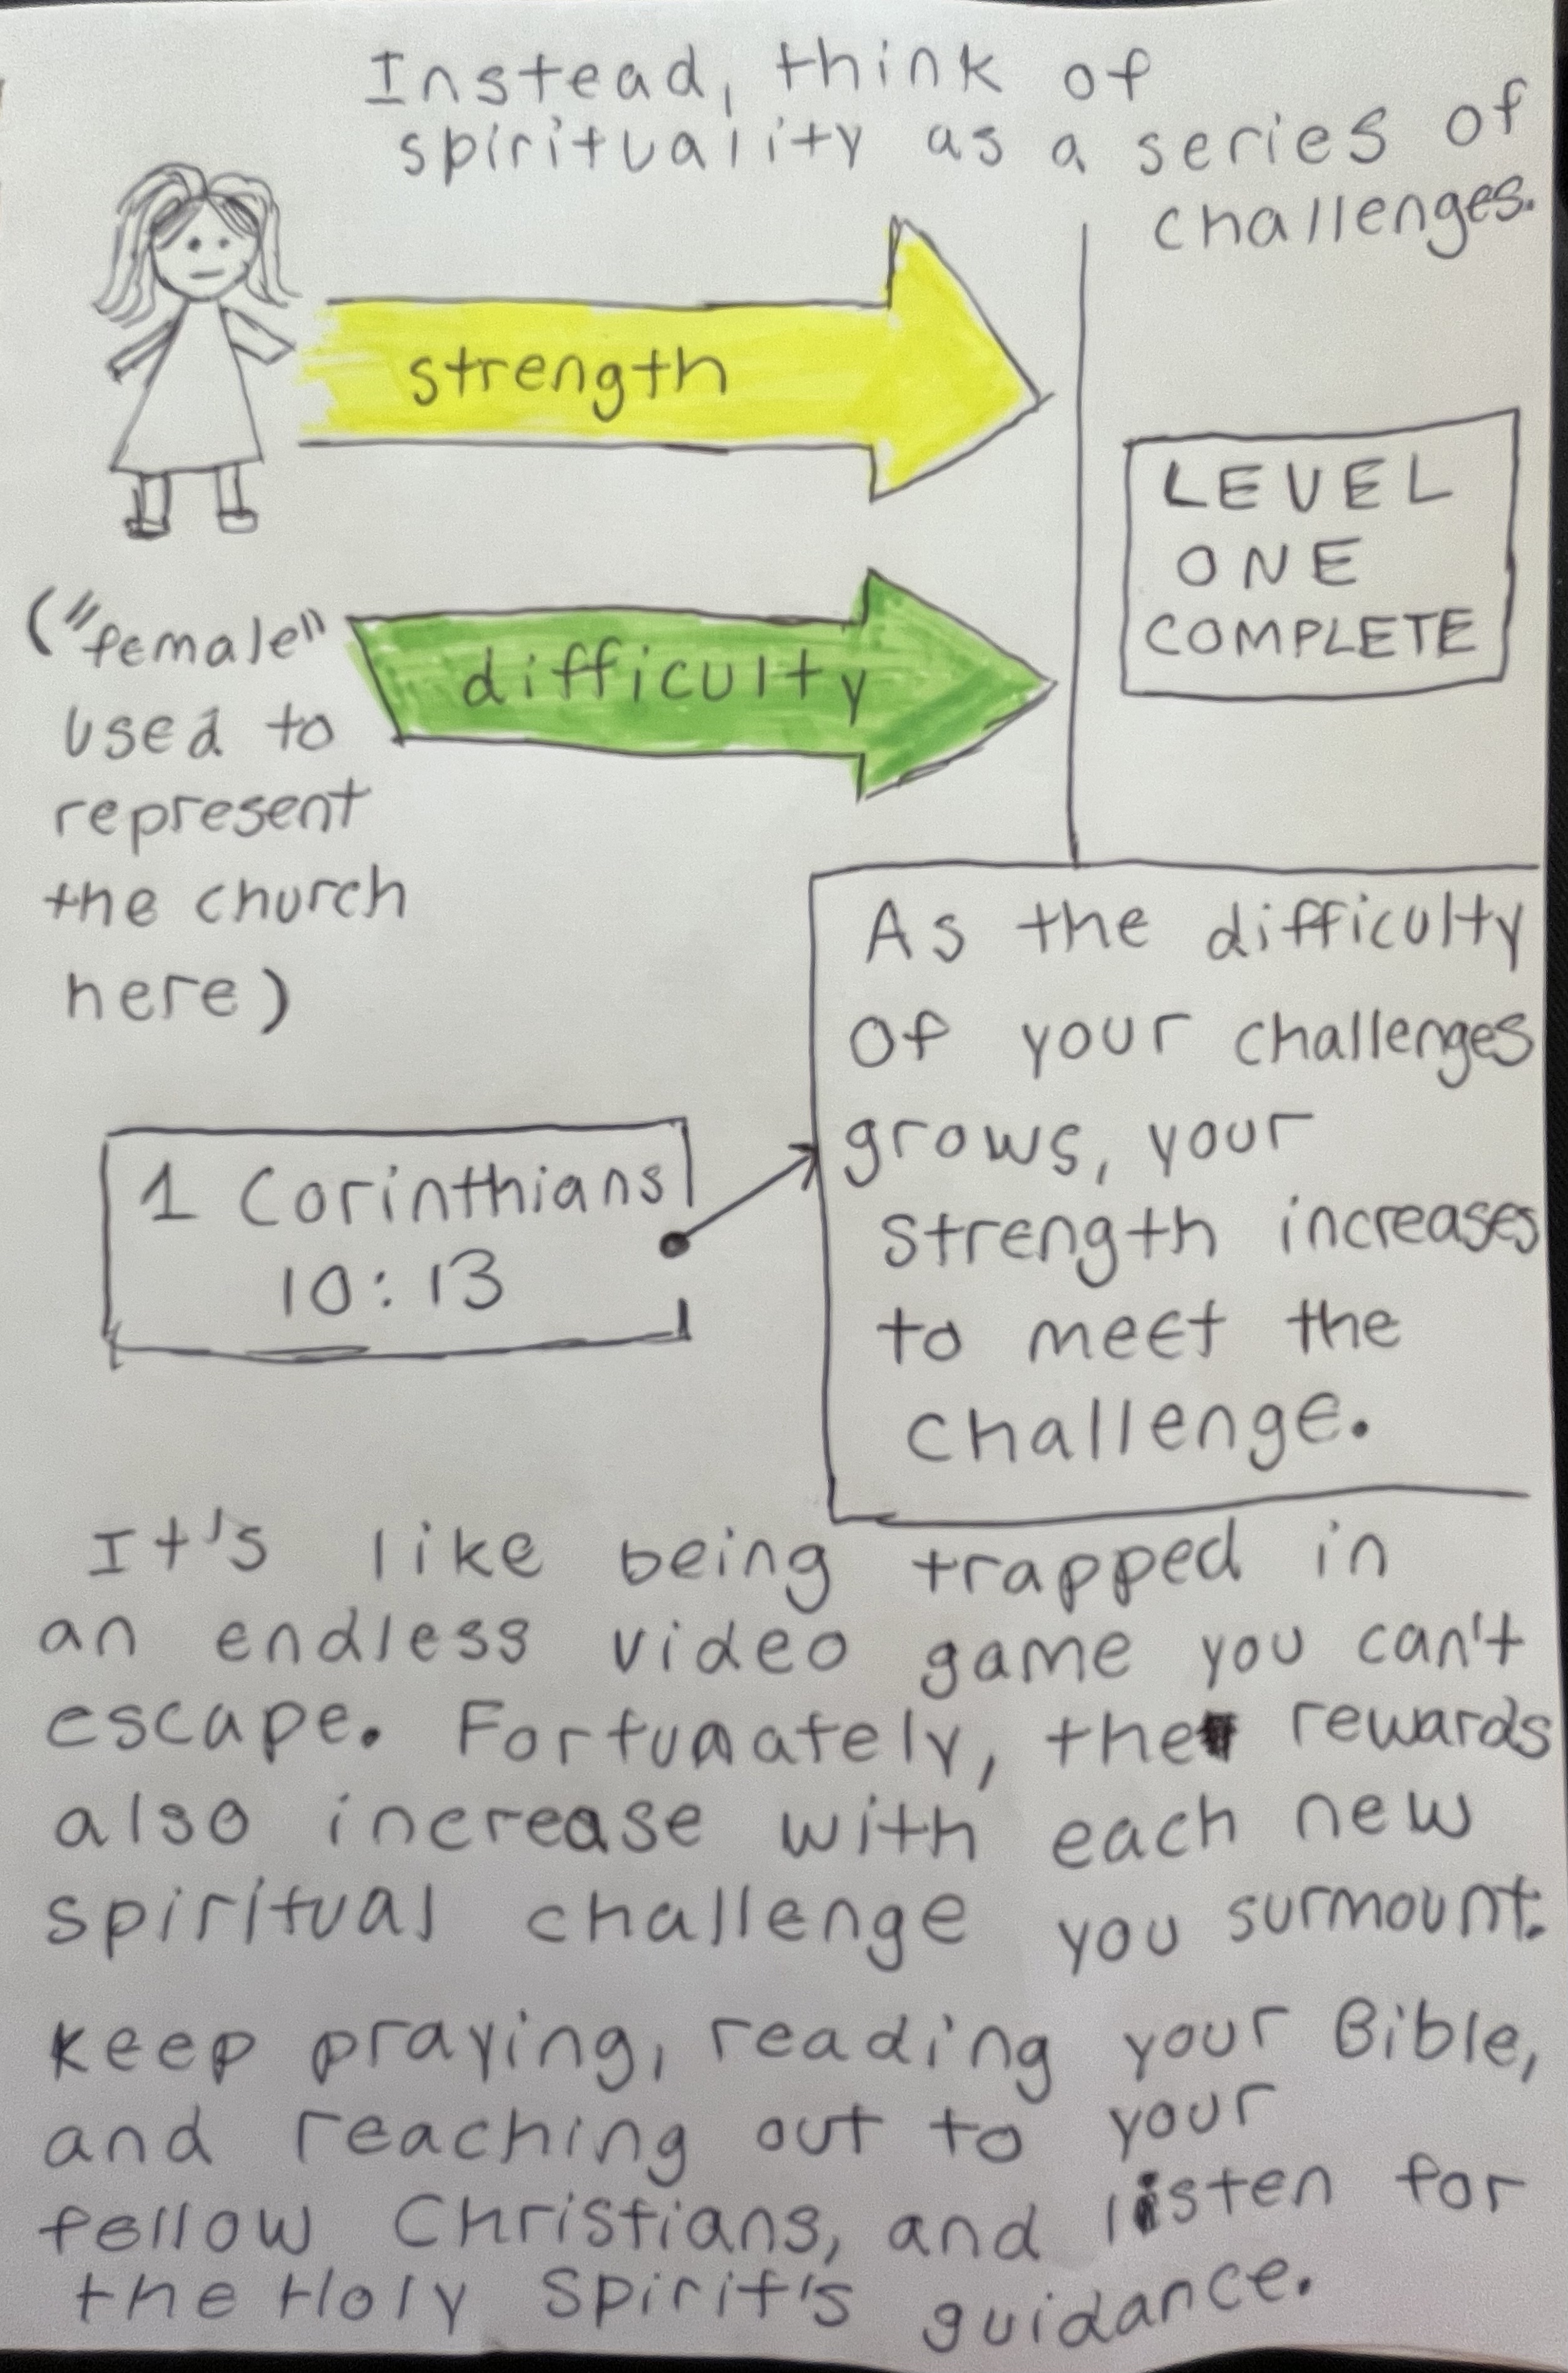 Instead, think of
spirituality as a series of
challenges.
strength
LEVEL
ONE
COMPLETE
("female"
used to
represent
the church
here)
difficulty
As the difficulty
of your challenges
grows, your
strength increases
to meet the
challenge.
1 Corinthians
10:13
It's like being trapped in
an endless video game you can't
escape. Fortunately, the rewards
also increase with each new
spiritual challenge you surmount.
Keep praying, reading your Bible,
and reaching out to your
fellow Christians, and listen for
the Holy Spirit's guidance.